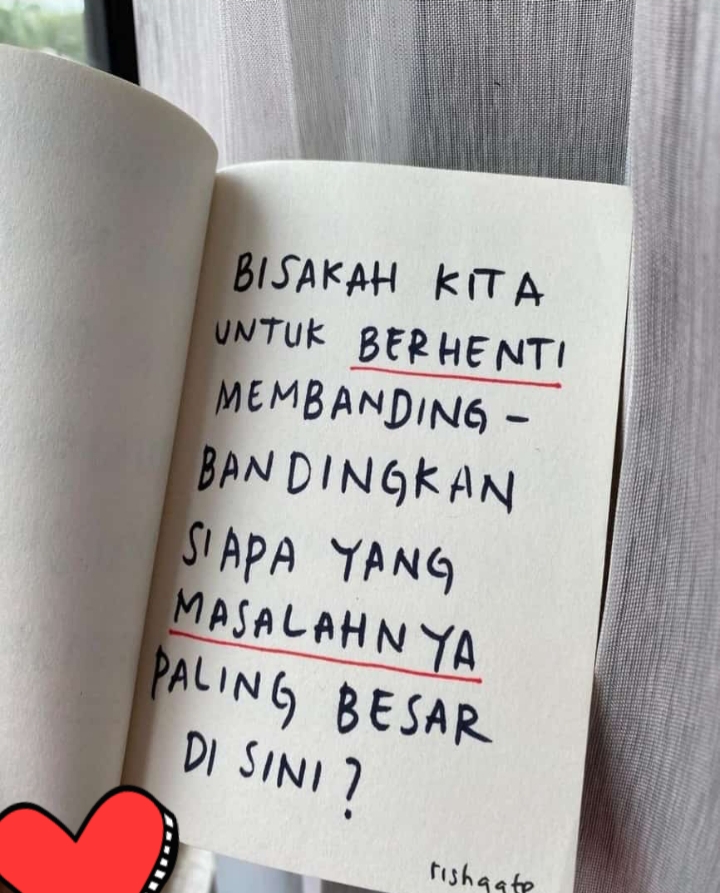 BISAKAH KITA
UNTUK BERHENTI
MEMBANDING-
BANDINGKAN
SIAPA YANG
MASALAHNYA
PALING BESAR
DI SINI?